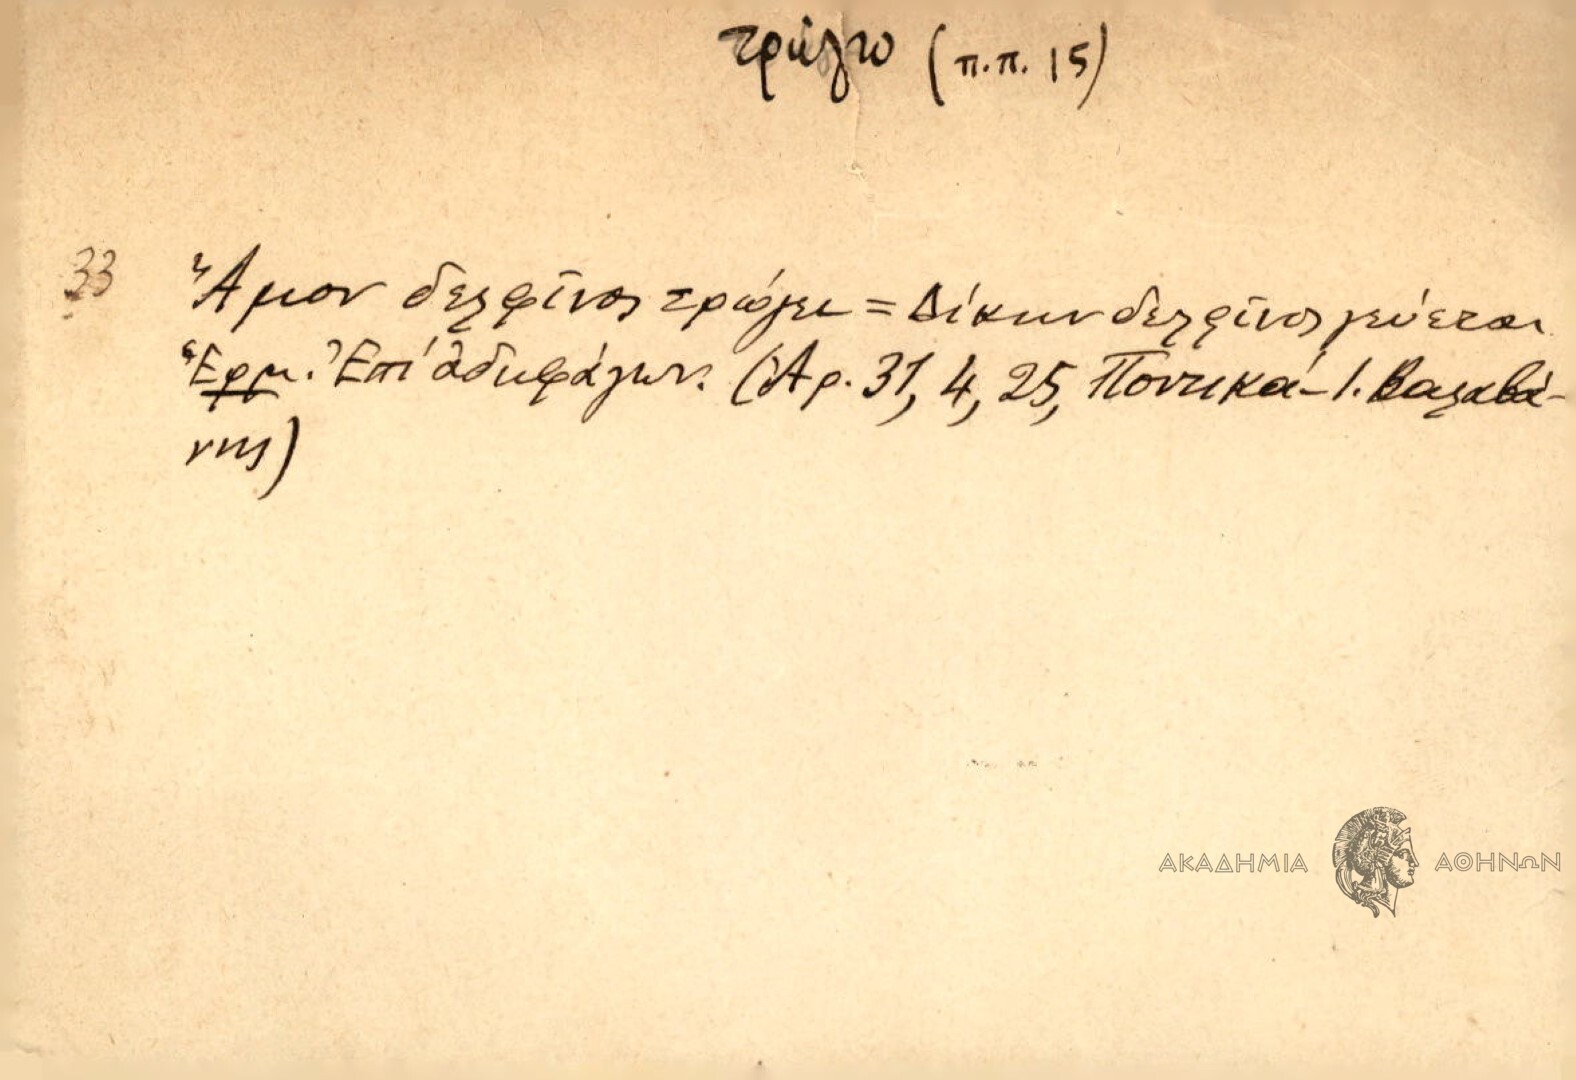 τρώγω (π.π. 15)
33 Ἄμον δελφῖνος τρώγει = Δίκην δελφῖνος γεύεται
Ἑρμ. Ἐπί ἀδηφάγων. (Ἀρ. 31, 4, 25, Ποντικά - Ι. Βαλαβά-
νης)
ΑΚΑΔΗΜΙΑ ΑΘΗΝΩΝ